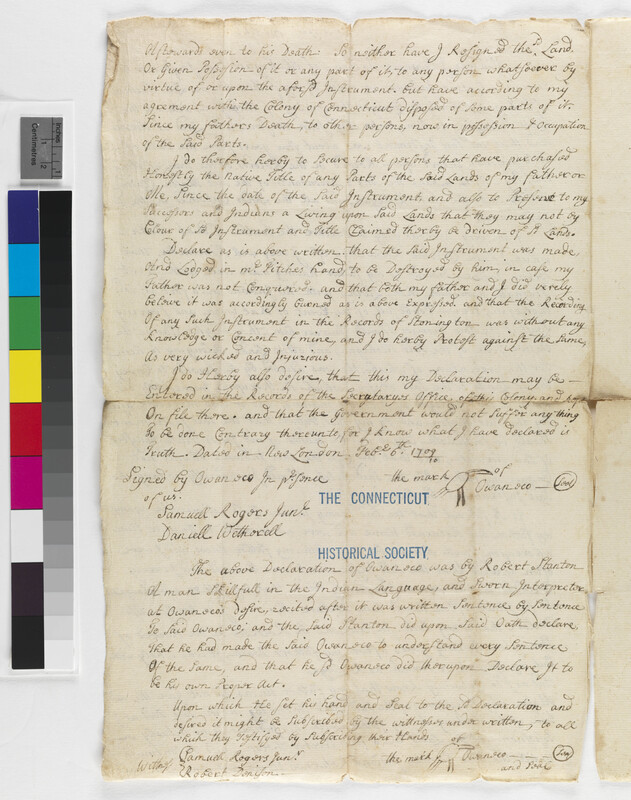 Afterwards even to his Death. So neither have I Resigned the sd. Land.
Or Given Possession of it or any part of it, to any person whatsoever by
virtue of or upon the aforsd Instrument. but have according to my
agrement with the Colony of Connecticut disposed of some parts of it,
Since my fathers Death, to other persons, now in possession & Occupation
of the Said Parts.
I do therfore herby to Secure to all persons that have purchased
Honestly the native Title of any Parts of the Said Lands of my father or
Me, Since the date of the Said Instrument, and also to Preserve to my
Successors and Indians a Living upon Said Lands that they may not by
Colour of sd Instrument and Title Claimed therby be driven of sd Lands.
Declare as is above written, that the Said Instrument was made,
And Lodged in mr. Fitches hand, to be Destroyed by him, in case my
Father was not Conquered. and that both my father and I did verely
beleive it was accordingly burned as is above Expressed. and that the Recording
Of any Such Instrument in the Records of Stonington was without any
Knowledge or Concent of mine, and I do herby Protest against the Same,
As very wicked and Injurious.
I do Herby also desire, that this my Declaration may be
Entered in the Records of the Secrytaryes Office of this Colony and kept
On file there. and that the Government would not Suffor any thing
To be done Contrary thereunto, for I know what I have declared is
Truth. Dated in New London Feb. 6th. 1709/10
Signed by Owaneco In presence the mark of
of us. Owaneco — Seal
Samuell Rogers Junr.
Daniell Wetherell
THE CONNECTICUT
HISTORICAL SOCIETY
The above Declaration of Owaneco was by Robert Stanton
A man Skillfull in the Indian Language, and Sworn Interpretor
at Owanecos desire, recited after it was written Sentence by Sentence
To Said Owaneco; and the Said Stanton did upon Said Oath declare
That he had made the Said Owaneco to understand every Sentence
Of the Same, and that he sd Owaneco did therupon Declare It to
be his own Proper Act.
Upon which He Set his hand and Seal to the sd Declaration and
desired it might be Subscribed by the wittnesses under written, to all
which they testifyed by Subscribing ther Hands
Samuel Rogers Junr. the mark of Owaneco — Seal
Witns Robert Denison. and Seal
Centimetres
Inches